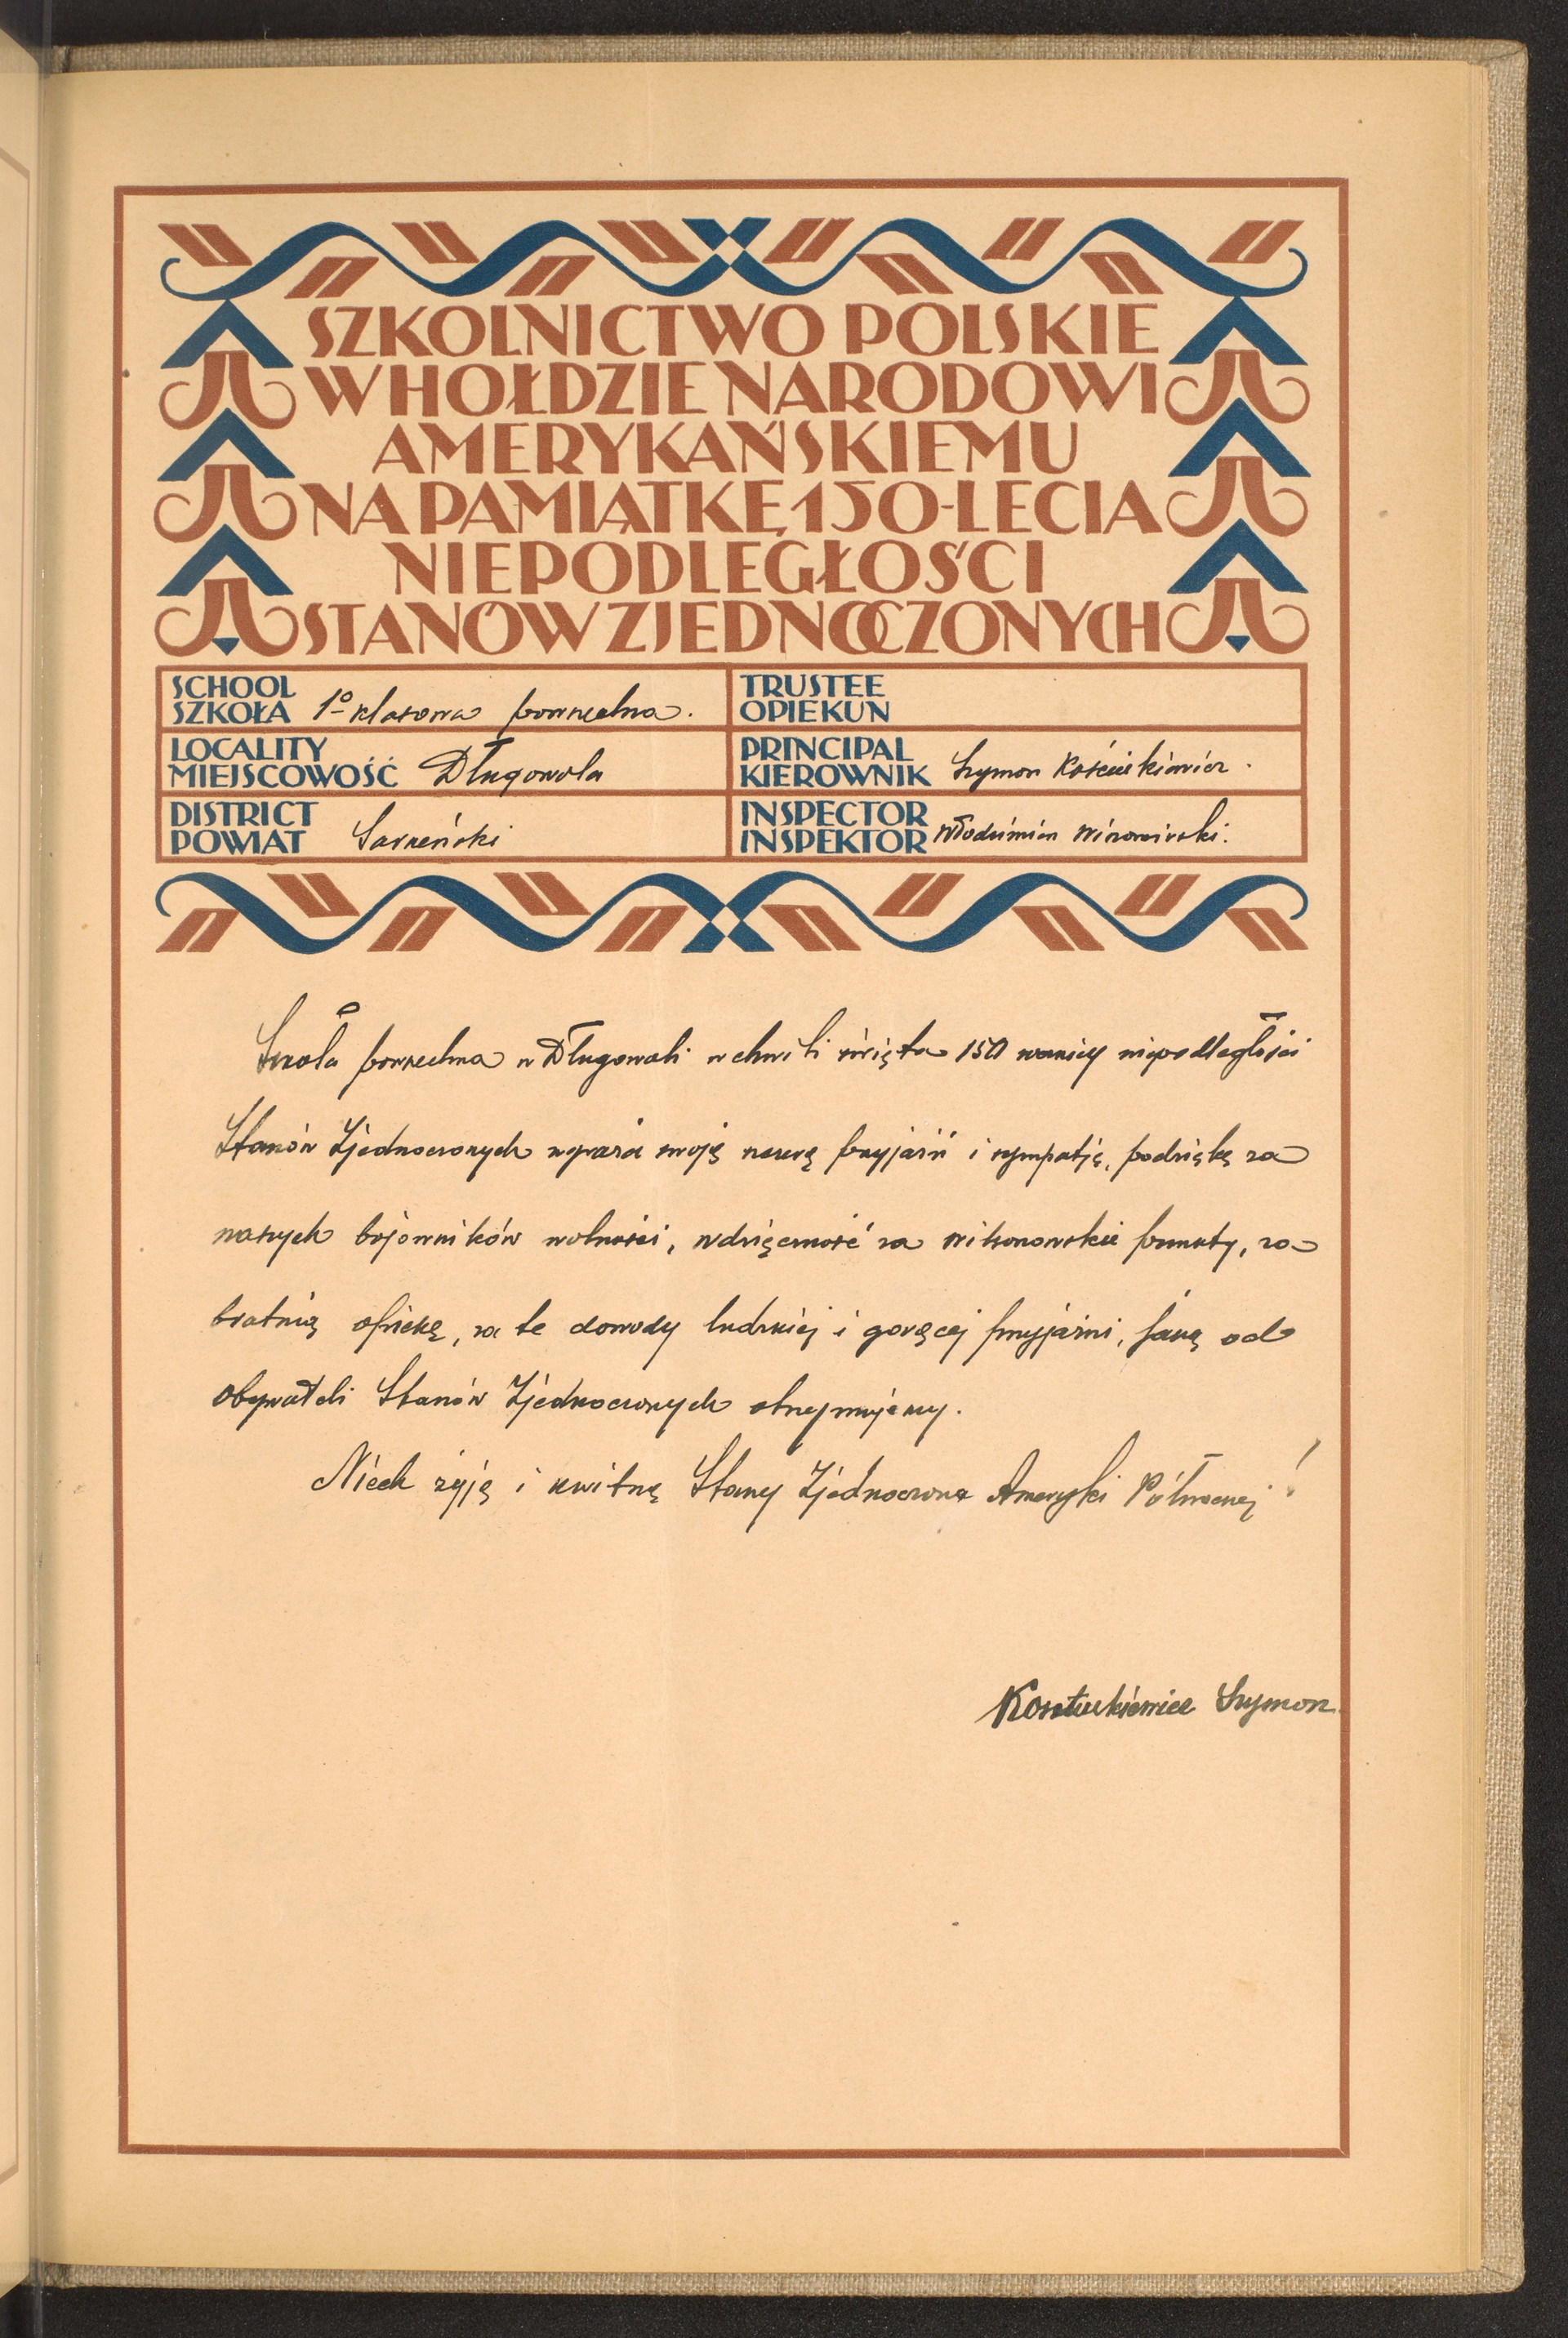 SZKOLNICTWO POLSKIE
W HOŁDZIE NARODOWI
AMERYKAŃSKIEMU
NA PAMIĄTKĘ 150-LECIA
NIEPODLEGŁOŚCI
STANÓW ZJEDNOCZONYCH
SCHOOL
SZKOŁA 1o klasowa powszechna.
TRUSTEE
OPIEKUN
LOCALITY
MIEJSCOWOŚĆ Długowola
PRINCIPAL
KIEROWNIK Szymon
DISTRICT
POWIAT Sarneński
INSPECTOR
INSPEKTOR Włodzimierz
Szkoła powszechna w Długowoli w chwili święta 150 rocznicy niepodległości
Stanów Zjednoczonych wyraża swoją szczerą przyjaźń i sympatję, podziękę za
naszych bojowników wolności, wdzięczność za wilsonowskie punkty, za
bratnią opiekę, za te dowody ludzkiej i gorącej przyjaźni, jaką od
obywateli Stanów Zjednoczonych otrzymujemy.
Niech żyją i kwitną Stany Zjednoczone Ameryki Północnej!
Szymon